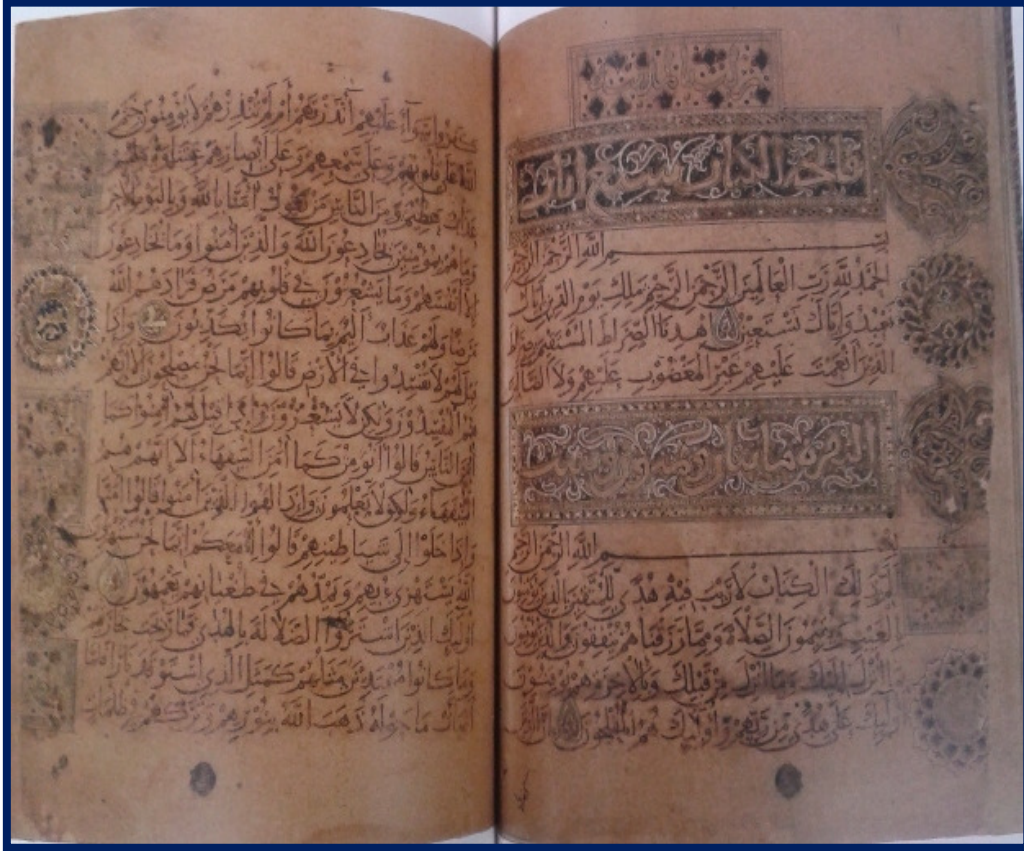 فاتحة الكتاب سبع ايات
بسم الله الرحمن الرحيم
الحمد لله رب العالمين الرحمن الرحيم ملك يوم الدين اياك
نعبد واياك نستعين اهدنا الصراط المستقيم صراط
الذين انعمت عليهم غير المغضوب عليهم ولا الضالين
البقرة مايتان
بسم الله الرحمن الرحيم
الم ذلك الكتاب لا ريب فيه هدى للمتقين الذين يؤمنون
بالغيب ويقيمون الصلاة ومما رزقناهم ينفقون والذين يؤمنون
بما انزل اليك وما انزل من قبلك وبالاخرة هم يوقنون
اوليك على هدى من ربهم واوليك هم المفلحون ان الذين
كفروا سواء عليهم أأنذرتهم أم لم تنذرهم لا يؤمنون ختم
الله على قلوبهم وعلى سمعهم وعلى ابصارهم غشاوة ولهم
عذاب عظيم ومن الناس من يقول امنا بالله وباليوم الاخر
وما هم بمؤمنين يخادعون الله والذين امنوا وما يخادعون
الا انفسهم وما يشعرون في قلوبهم مرض فزادهم الله
مرضا ولهم عذاب اليم بما كانوا يكذبون واذا
قيل لهم لا تفسدوا في الارض قالوا انما نحن مصلحون الا انهم
هم المفسدون ولكن لا يشعرون واذا قيل لهم امنوا كما
امن الناس قالوا انومن كما امن السفهاء الا انهم هم
السفهاء ولكن لا يعلمون واذا لقوا الذين امنوا قالوا امنا
واذا خلوا الى شياطينهم قالوا انا معكم انما نحن مستهزون
الله يستهزئ بهم ويمدهم في طغيانهم يعمهون
اوليك الذين اشتروا الضلالة بالهدى فما ربحت تجارتهم
وما كانوا مهتدين مثلهم كمثل الذي استوقد نارا فلما
اضات ما حوله ذهب الله بنورهم وتركهم في ظلمات